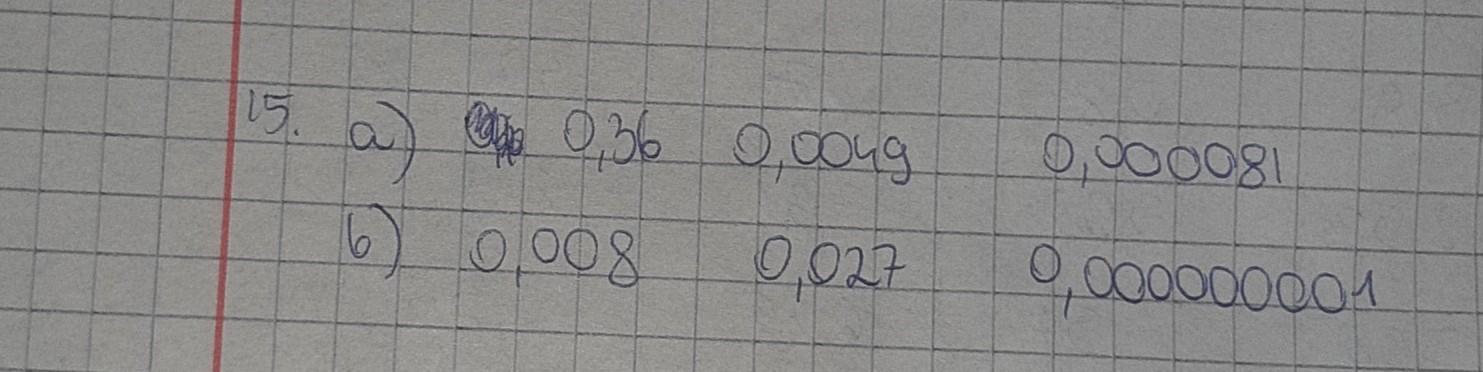 15. a) 0,36 0,0049 0,000081
b) 0,008 0,027 0,000000001